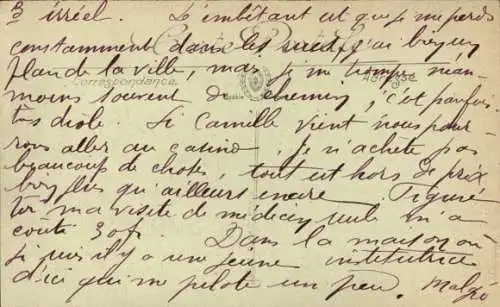 irréel. L'embêtant est que je me perds
constamment dans les rues, j'ai bien un
plan de la ville, mais je me trompe néan-
Correspondance
moins souvent de chemin, c'est parfois
très drôle. Si Camille vient nous pour-
rons aller au casino. Je n'achète pas
beaucoup de choses, tout est hors de prix
plus qu'ailleurs encore. Figure
toi, ma visite de médecin seule m'a
coûté 30f. Dans la maison où
je suis il y a une jeune institutrice
d'ici qui me pilote un peu. Malgré